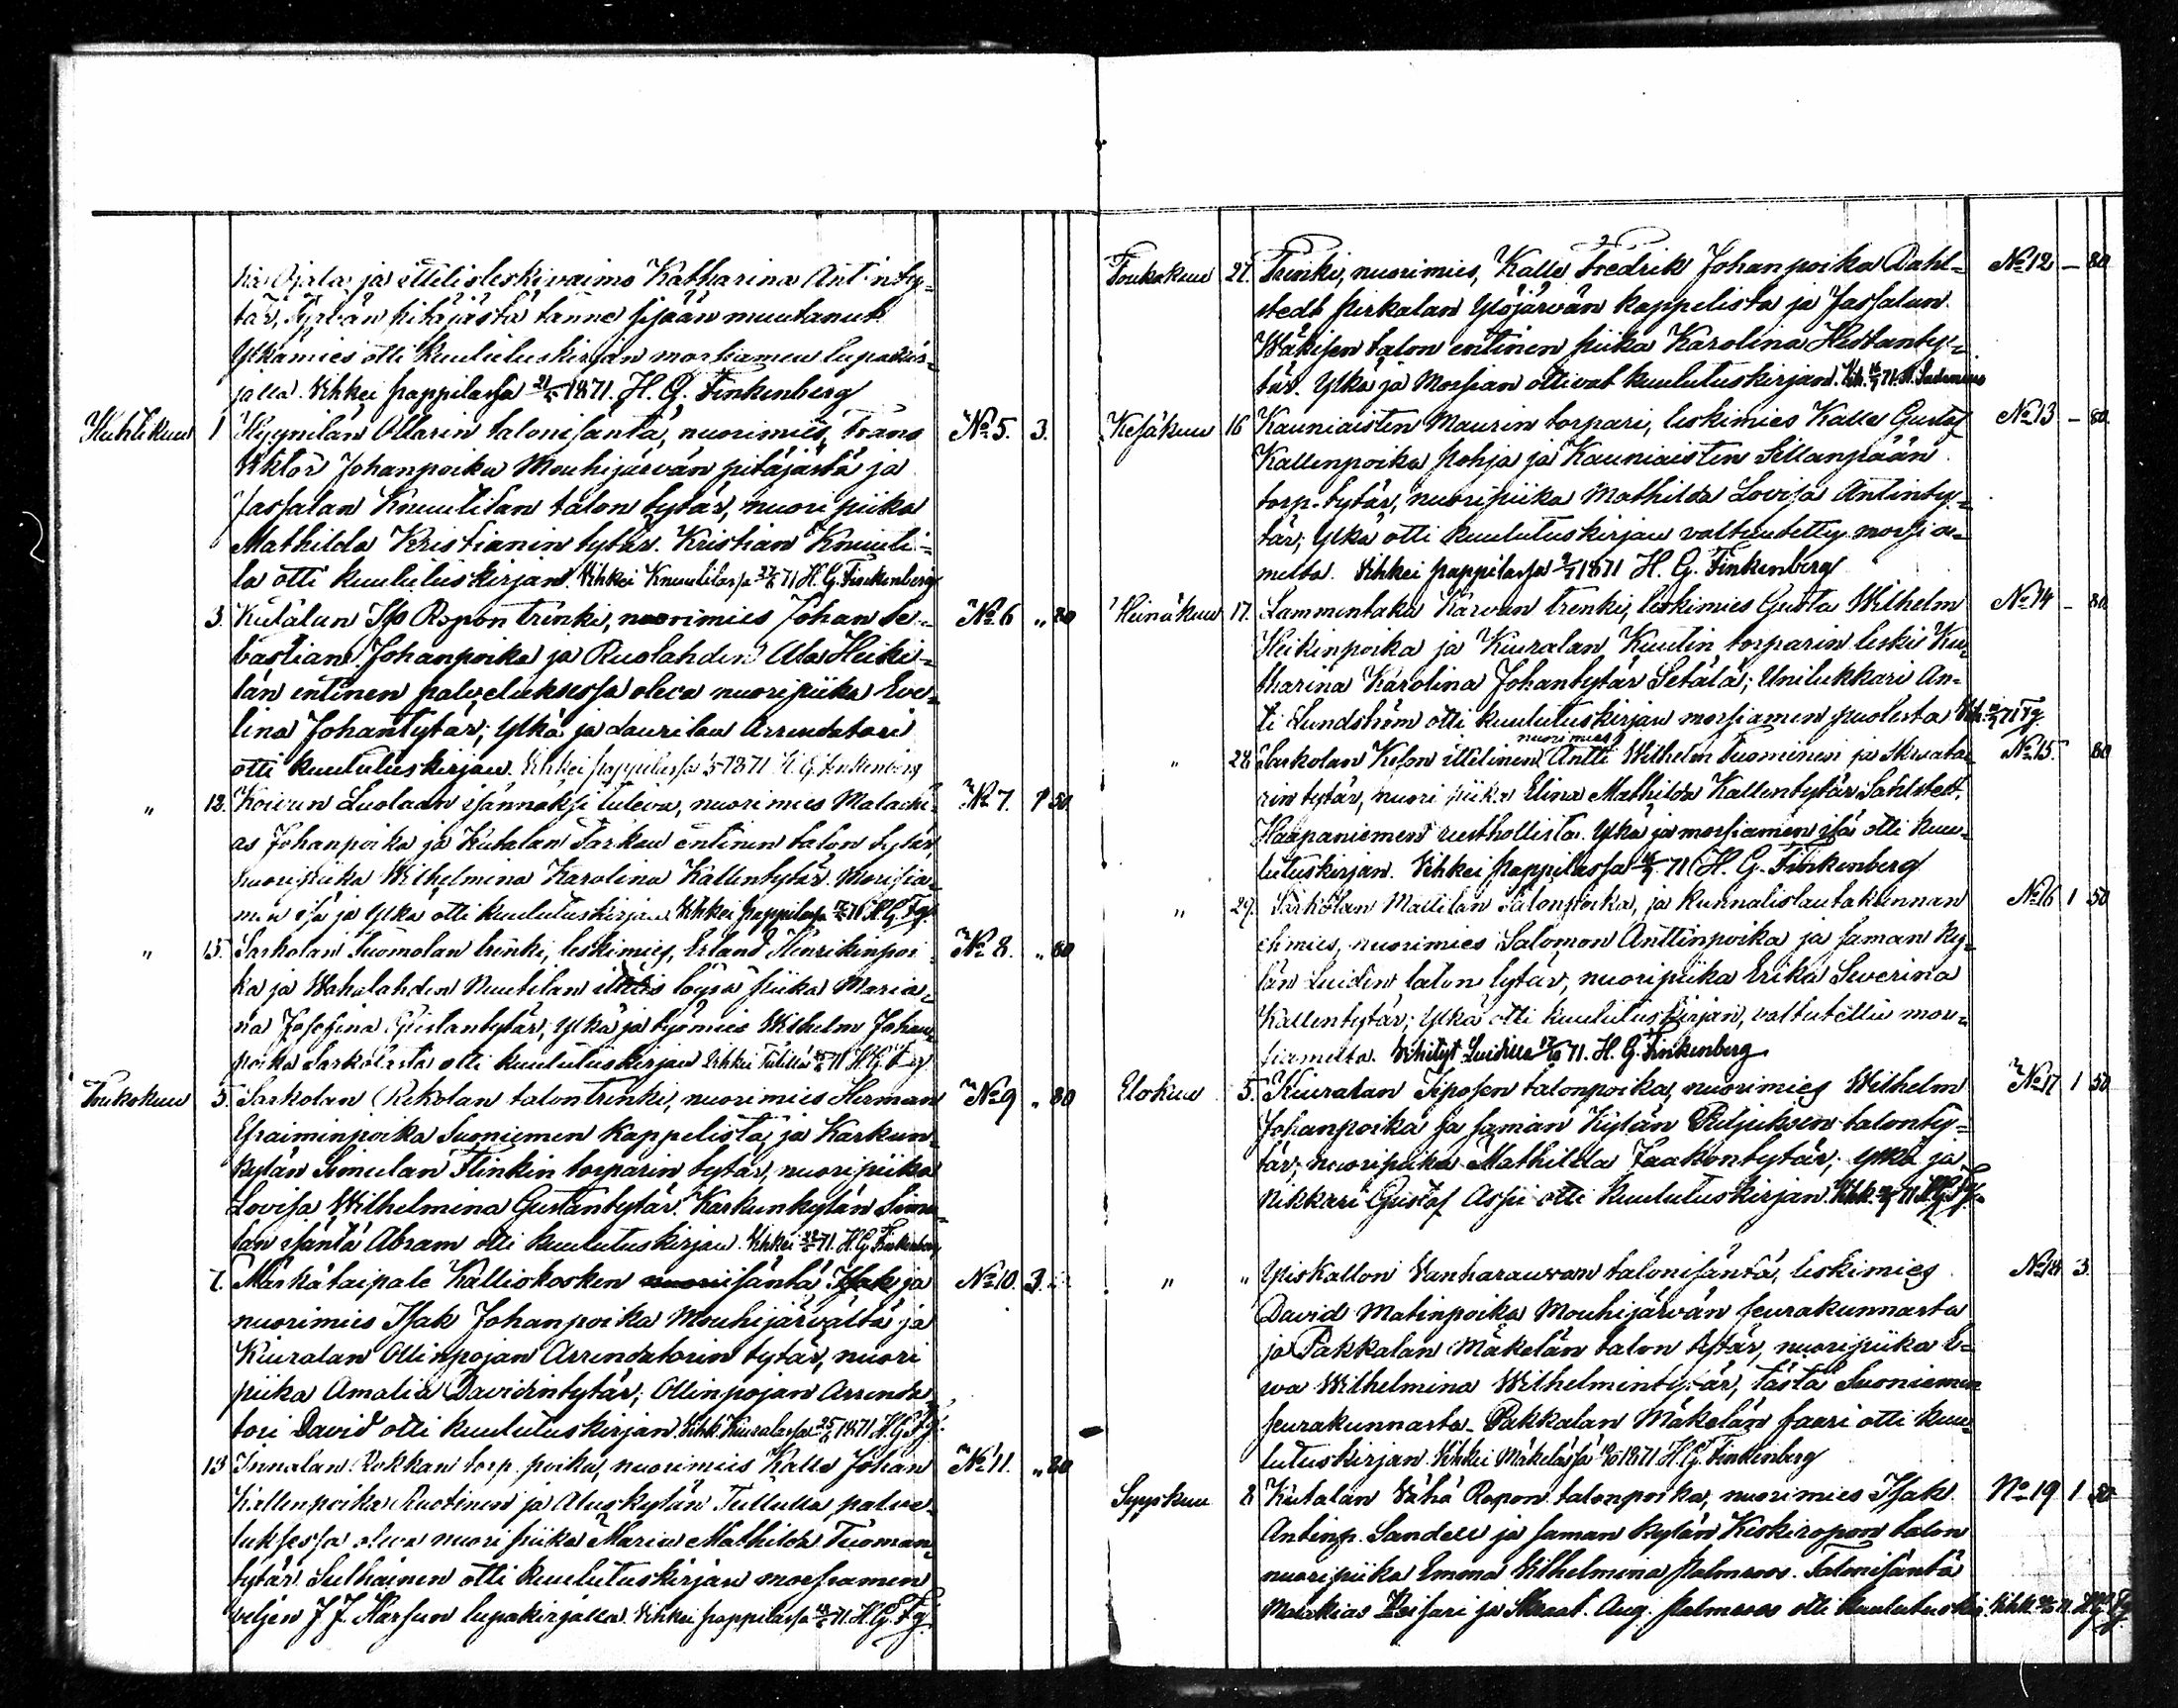 ja ittelisleskivaimo Katharina Antinty-
tär, Tyrvän pitäjästä tänne sisään muutanut.
Ylkämies otti kuulutuskirjan morsiamen lupakir-
jalla. Vihkei pappilassa 1871. H. G. Finkenberg
Huhtikuu 1 Hyynilän Ollarin talonisäntä, nuorimies, Frans No 5. 3.
Viktor Johanpoika Mouhijärvän pitäjästä ja
Jassalan Knuutilan talon tytär, nuori piika
Mathilda Kristianin tytär. Kristian Knuuti-
la otti kuulutuskirjan. Vihkei Knuutilassa 71 H. G. Finkenberg
3. Kutalan Iso Ropon trenki, nuorimies Johan Se- No 6 " 80
bastian Johanpoika ja Ruolahden Ala Heiki-
län entinen palveluksessa oleva nuoripiika Eve-
lina Johantytär; Ylkä ja Laurilan Arrendatori
otti kuulutuskirjan. Vihkei pappilassa 1871 H. G. Finkenberg
" 12. Koivun Luolaan isännäksi tuleva, nuorimies Malaki- No 7. 1 50
as Johanpoika ja Kutalan Tarkan entinen talon tytär,
nuoripiika Wilhelmina Karolina Kallentytär. Morsia-
men isä ja Ylkä otti kuulutuskirjan Vihkei pappilassa 71 H. G. Fg.
" 15. Sarkolan Tuomolan trenki, leskimies, Erland Henrikinpoi- No 8. " 80
ka ja Wahalahden Nuutilan löysä piika Maria-
na Josefina Kustantytär; Ylkä ja työmies Wilhelm Johan-
poika Sarkolasta otti kuulutuskirjan Vihkei 71 H. G. Fg.
Toukokuu 5. Sarkolan Rekolan talon trenki, nuorimies Herman No 9 " 80
Efraiminpoika Suoniemen kappelista ja Karkun-
kylän Simulan Flinkin torparin tytär, nuori piika
Lovisa Wilhelmina Gustantytär. Karkunkylän Simu-
lan isäntä Abram otti kuulutuskirjan. Vihkei 71. H. G. Finkenberg
7. Märkätaipale Kalliokosken isäntä, Isak ja No 10. 3.
nuorimies Isak Johanpoika Mouhijärvältä ja
Kiuralan Ollinpojan Arrendatorin tytär, nuori
piika Amalia Davidintytär; Ollinpojan Arrenda-
tori David otti kuulutuskirjan. Vihk. Kiuralassa 25 1871 H. G. Fg.
13 Innalan Rokkan torp. poika, nuorimies Kalle Johan No 11. " 80
Kallenpoika Ruotinen ja Aluskylän Tullulla palve-
luksessa oleva nuori piika Maria Mathilda Tuoman-
tytär. Sulhainen otti kuulutuskirjan morsiamen
veljen J. J. lupakirjalla. Vihkei pappilassa 71. H. G. Fg
Toukokuu 21. Trenki, nuorimies, Kalle Fredrik Johanpoika Dahl- No 12 — 80
stedt Pirkalan Ylöjärvän kappelista ja Jassalan
Wäkisen talon entinen piika Karolina Hestanty-
tär. Ylkä ja Morsian ottivat kuulutuskirjan.
Kesäkuu 16 Kauniaisten Maurin torpari, leskimies Kalle Gustaf No 13 — 80.
Kallenpoika Pohja ja Kauniaisten Sillanpään
torp. tytär, nuoripiika Mathilda Lovisa Antinty-
tär; Ylkä otti kuulutuskirjan valtuutettu morsia-
melta. Vihkei pappilassa 1871 H. G. Finkenberg
Heinäkuu 17. Lammentaka Karvan trenki, leskimies Gusta Wilhelm No 14 — 80.
Heikinpoika ja Kiuralan Kuutin torparin leski Ka-
tharina Karolina Johantytär Setälä; Unilukkari An-
ti Lundström otti kuulutuskirjan morsiamen puolesta 71 Fg.
nuorimies
" 28 Sarkolan Keson ittelinen Antti Wilhelm Tuominen ja No 15. 80
rin tytär, nuori piika Elina Mathilda Kallentytär Sahlstedt,
Haapaniemen rusthollista. Ylkä ja morsiamen isä otti kuu-
lutuskirjan. Vihkei pappilassa 71 H. G. Finkenberg
" 29. Sarkolan Mattilan talonpoika, ja kunnalislautakunnan No 16 1 50
nuorimies Salomon Anttinpoika ja saman ky-
län Luidin talon tytär, nuoripiika Erika Severina
Kallentytär; Ylkä otti kuulutuskirjan, valtutettu mor-
siamelta. Vihityt Luidilla 71. H. G. Finkenberg
Elokuu 5. Kiuralan Siposen talonpoika, nuorimies Wilhelm No 17 1 50
Johanpoika ja saman kylän talonty-
tär; nuoripiika Mathilda Jaakontytär; Ylkä ja
nikkari Gustaf otti kuulutuskirjan. Vihk. 71 H. G. Fg.
" " Yliskallon Vanharauvan talonisäntä, leskimies No 18 3.
David Matinpoika Mouhijärvän seurakunnasta
ja Pakkalan Mäkelän talon tytär, nuoripiika E-
wa Wilhelmina Wilhelmintytär, tästä Suoniemen
seurakunnasta. Pakkalan Mäkelän faari otti kuu-
lutuskirjan. Vihkei Mäkelässä 1871 H. G. Finkenberg
Syyskuu 8 Kutalan Vähä Ropon talonpoika, nuorimies Isak No 19 1 50
Antinp. Sandell ja saman kylän Keskiropon talon
nuoripiika Emma Vilhelmina Palmroos. Talonisäntä
Malakias ja Aug. Palmroos otti kuulutuskir.